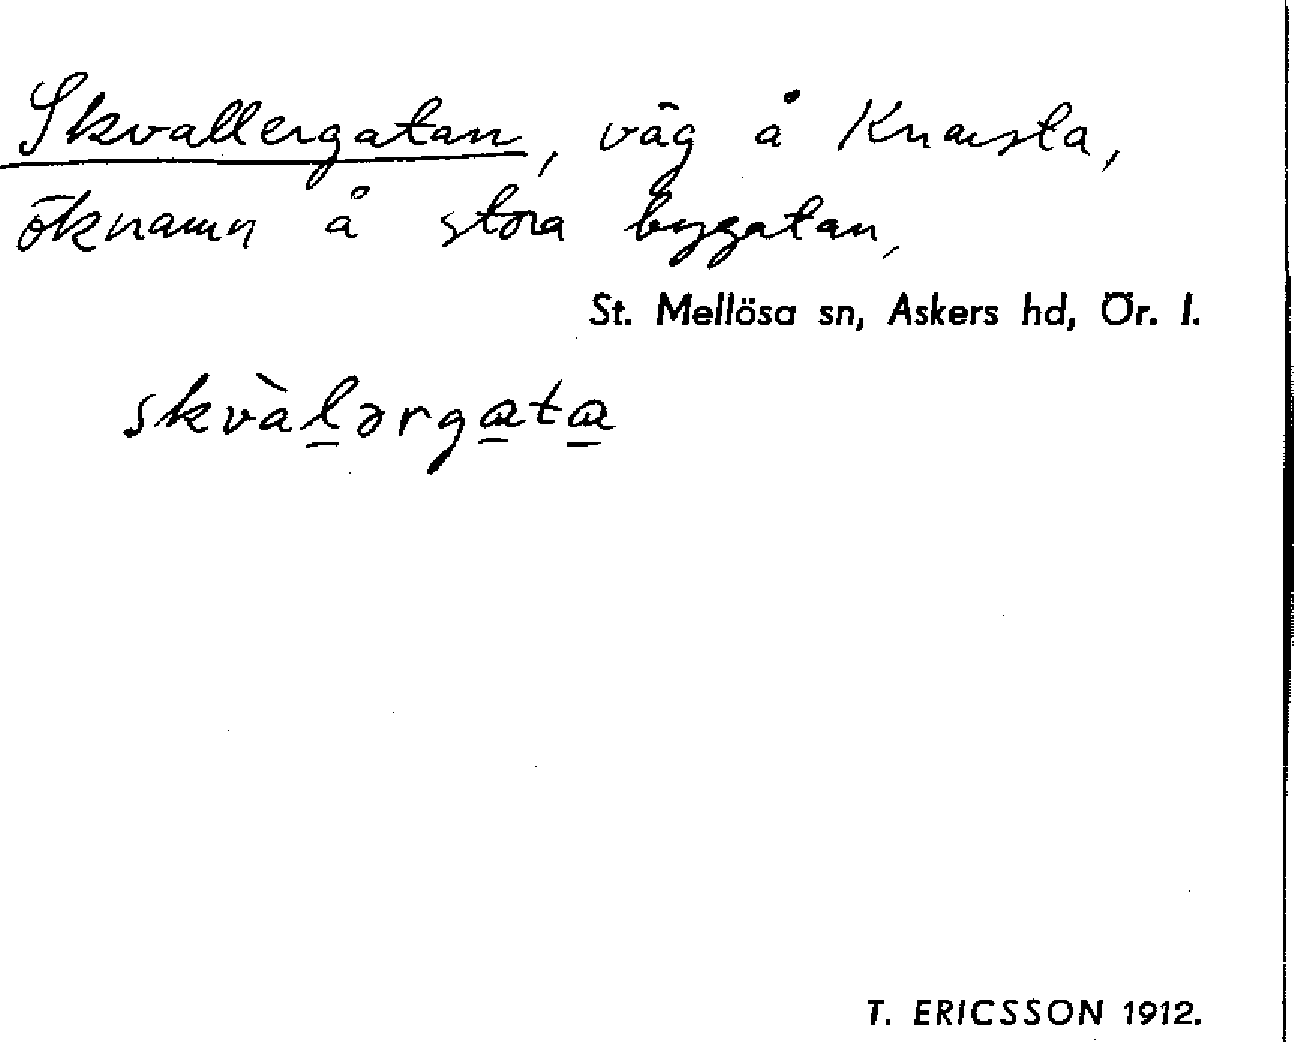 Skvallergatan, väg å Knarsta,
öknamn å stora bygatan,
St. Mellösa sn, Askers hd, Ör. l.
skvàl̲ərga̲ta̲
T. ERICSSON 1912.